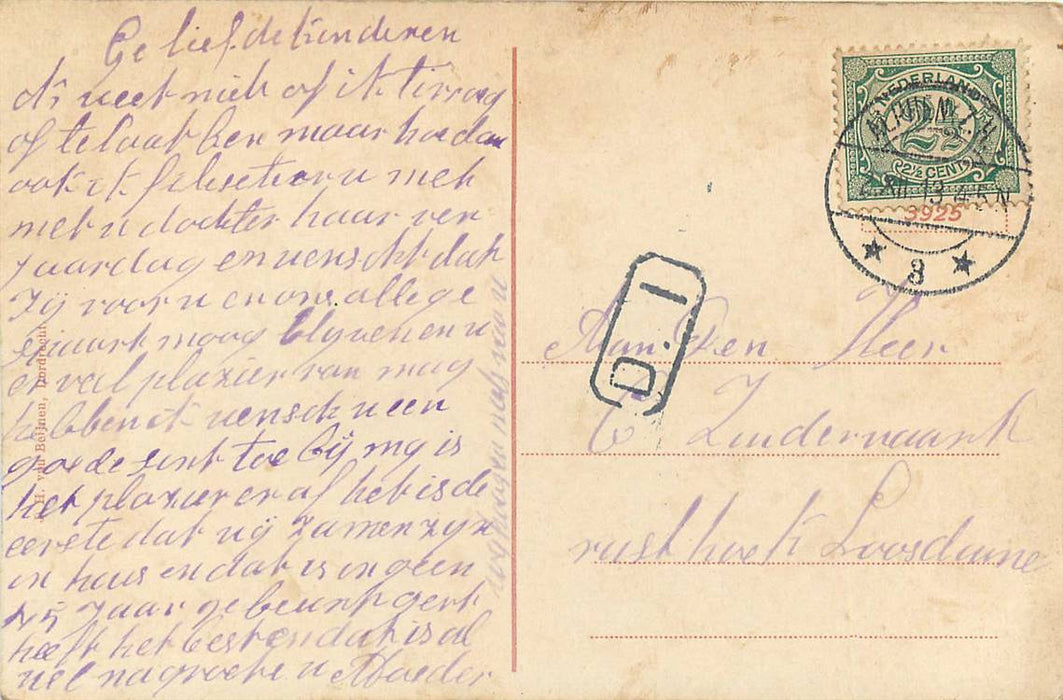 Ge liefde kinderen
of te laat ben maar hoe dan
ook ik u met
met u dochter haar ver
jaardag en wensch dat
Zij voor u en ons allege
spaart moog blyven en u
er veel plazier van mag
hebben ik wensch u een
goede sint toe bij my is
het plazier er af het is de
eerste dat wij zamen zyn
in huis en dat is in geen
25 Jaar gebeurt gert
heeft het best en dat is al
vel na groete u Moeder
H. van Beijnen, Dordrecht
NEDERLAND
2½
2½ CENT
XII 13 4-5 N
3925
3
D. I
Aan Den Heer
C Zuidervaart
rusthoek Loosduine